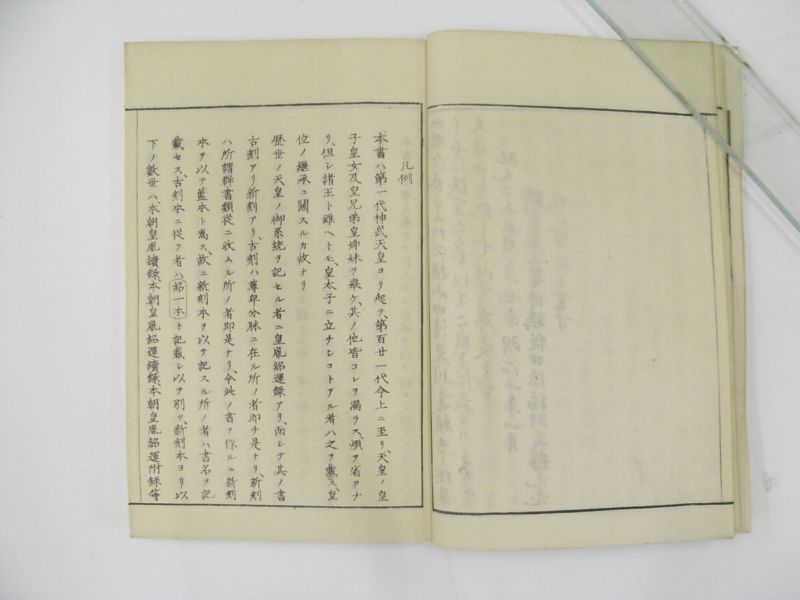 凡例
本書ハ第一代神武天皇ヨリ起テ、第百廿一代今上ニ至リ、天皇ノ皇
子皇女及皇兄弟皇姉妹ヲ擧ケ、其ノ他皆コレヲ漏ラス、煩ヲ省クナ
リ、但シ諸王ト雖ヘトモ、皇太子ニ立チシコトアル者ハ之ヲ載ス、皇
位ノ継承ニ關スルカ故ナリ
歴世ノ天皇ノ御系統ヲ記セル者ニ皇胤紹運録アリ、而シテ其ノ書
古刻アリ新刻アリ、古刻ハ尊卑分脉ニ在ル所ノ者即チ是ナリ、新刻
ハ所謂群書類從ニ收ムル所ノ者即是ナリ、今此ノ書ヲ作ルニ新刻
本ヲ以テ藍本ト為ス、故ニ新刻本ヲ以テ記スル所ノ者ハ書名ヲ記
載セス、古刻本ニ從フ者ハ紹一本ト記載シ以テ別ツ、新刻本ヨリ以
下ノ數世ハ、本朝皇胤續錄、本朝皇胤紹運續錄、本朝皇胤紹運附錄等